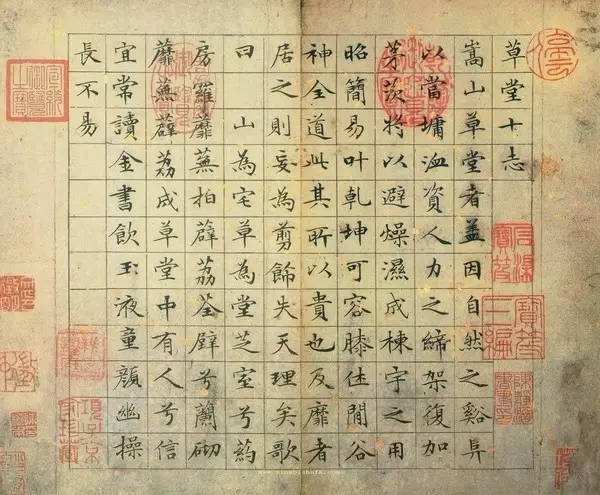 草堂十志
嵩山草堂者盖因自然之谿阜
以當墉洫資人力之締架復加
茅茨將以避燥濕成棟宇之用
昭簡易叶乾坤可容膝休閒谷
神全道此其所以貴也及靡者
居之則妄為剪餙失天理矣歌
曰 山為宅草為堂芝室兮葯
房羅蘼蕪拍薜荔荃壁兮蘭砌
蘼蕪薜荔成草堂中有人兮信
宜常讀金書飲玉液童顏幽操
長不易